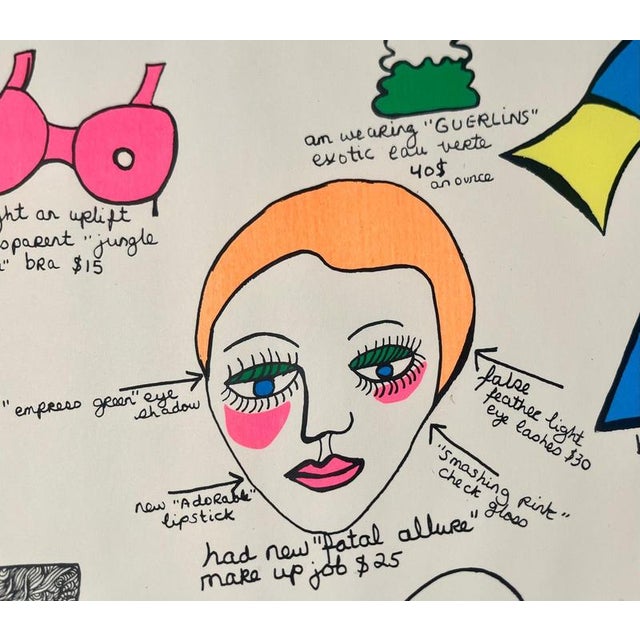 am wearing "GUERLINS"
exotic eau verte
40$
an ounce
an uplift
"jungle
bra $15
"empress green" eye
shadow
false
feather light
eye lashes $30
"smashing pink"
check gloss
new "Adorable"
lipstick
had new "fatal allure"
make up job $25